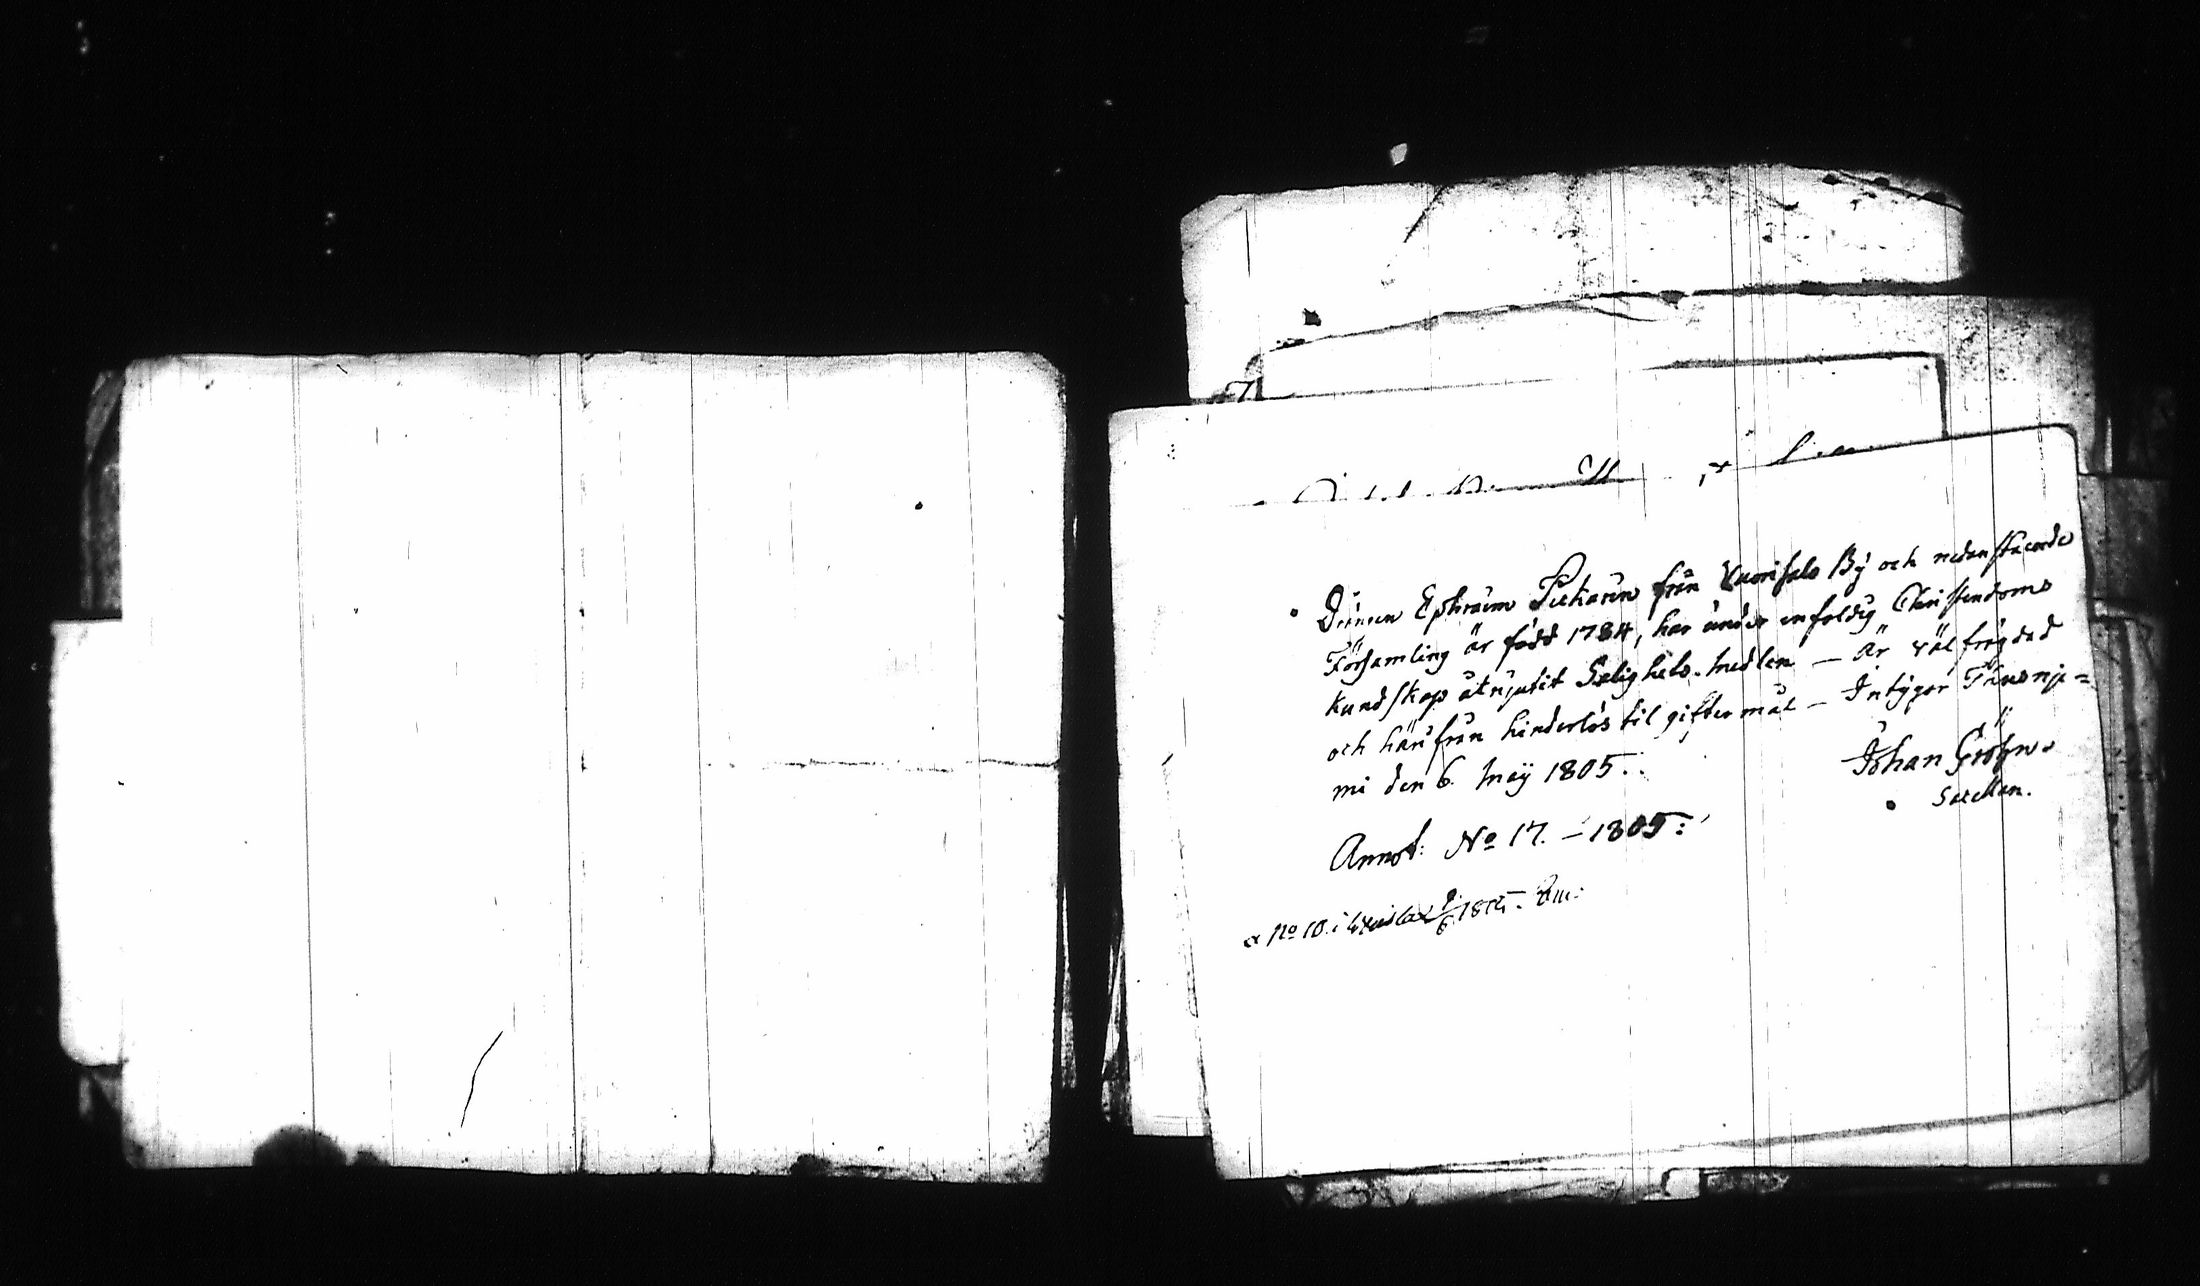 Drängen Ephraim Piekarin från Vuorisalo By och nedanstående
Församling är född 1784, har under enfoldig Christendoms
kundskap åtnjutit Salighets-medlen — Är väl frägdad
och härifrån hinderlös til giftermål — Intÿgar Thusnje=
mi den 6. Maÿ 1805.
Johan Gröhn.
Sacellan.
Annot: No 17. – 1805:
a No 10. i 1805.